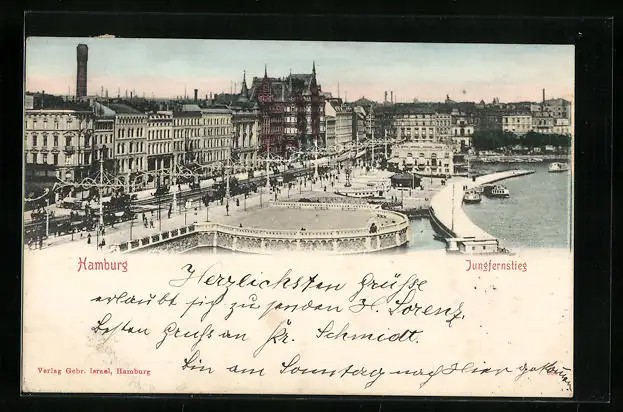 Hamburg
Jungfernstieg
Herzlichsten Grüsse
erlaubt sich zu senden H. Lorenz.
Besten Gruss an Fr. Schmidt.
Bin am Sonntag nach Hier gekommen.
Verlag Gebr. Israel, Hamburg